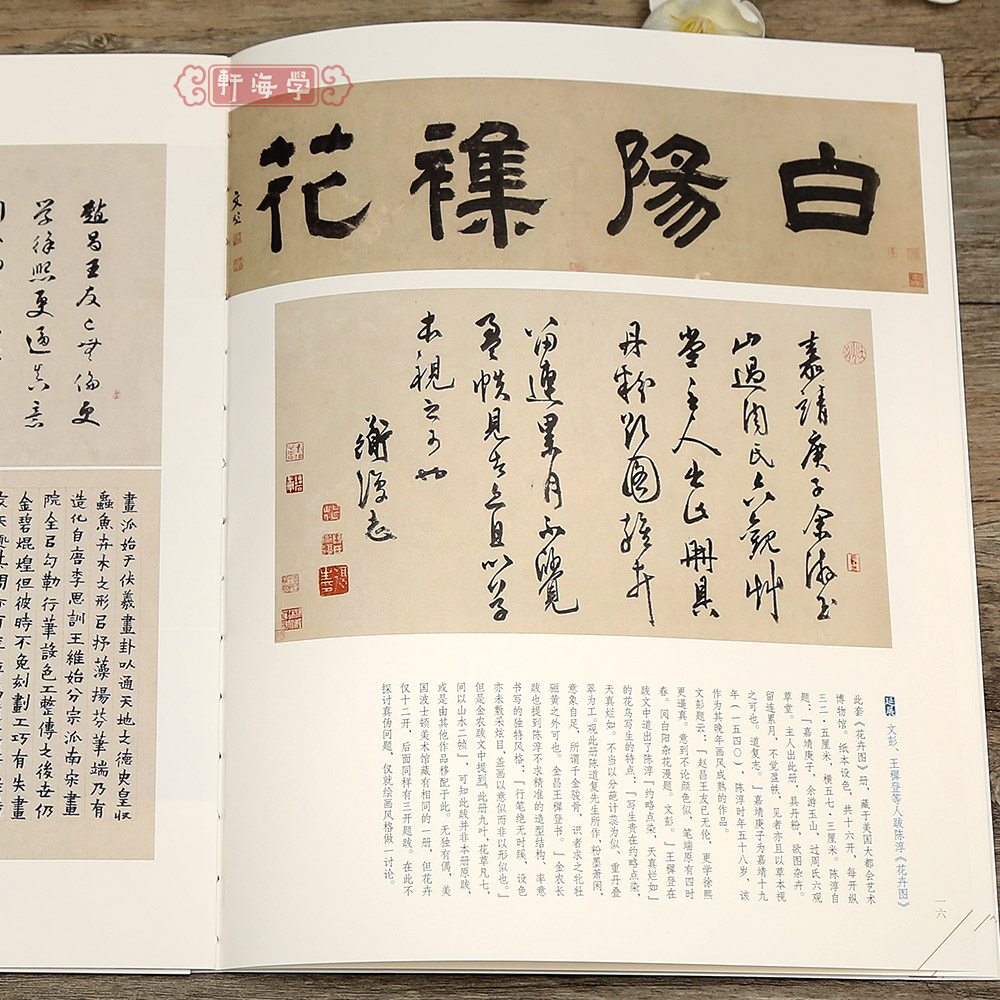 學海軒
白陽襍花
文彭
嘉靖庚子余游玉
山過周氏六觀艸
堂主人出此冊具
丹粉欲图雜卉
留連累月不覺
盈帙見者亦且以草
本視之可也
道復志
延展 文彭、王穉登等人跋陈淳《花卉图》
此套《花卉图》册，藏于美国大都会艺术
博物馆。纸本设色，共十六开，每开纵
三二·五厘米，横五七·三厘米。陈淳自
题：「嘉靖庚子，余游玉山，过周氏六观
草堂。主人出此册，具丹粉，欲图杂卉。
留连累月，不觉盈帙，见者亦且以草本视
之可也。道复志。」嘉靖庚子为嘉靖十九
年（一五四〇），陈淳时年五十八岁，该
作为其晚年画风成熟的作品。
文彭题云：「赵昌王友已无伦，更学徐熙
更逼真。意到不论颜色似，笔端原有四时
春。阅白阳杂花漫题。文彭。」王穉登在
跋文中道出了陈淳「约略点染，天真烂如」
的花鸟写生的特点：「写生贵在约略点染，
天真烂如。不当以分葩计蕊为似、重丹叠
翠为工。观此册陈道复先生所作，粉墨萧闲，
意象自足，所谓千金骏骨，识者求之牝牡
骊黄之外可也。金昌王穉登书。」金农长
跋也提到陈淳不求精准的造型结构、率意
书写的独特风格：「行笔绝无时蹊，设色
亦未敷采炫目，盖画以意似而非以形似也。」
但是金农跋文中提到「此册九叶，花草凡七，
间以山水二帧」，可知此跋并非本册原跋，
或是由其他作品移配于此。无独有偶，美
国波士顿美术馆藏有相同的一册，但花卉
仅十二开，后面同样有三开题跋。在此不
探讨真伪问题，仅就绘画风格做一讨论。
一六
趙昌王友已無倫更
学徐熙更逼真意
畫派始于伏羲畫卦以通天地之德史皇收
蟲魚卉木之形㠯抒藻揚芬筆端乃有
造化自唐李思訓王維始分宗派南宋畫
院全㠯勾勒行筆設色工整傳之後世仍
金碧焜煌但彼時不免刻劃工巧有失畫